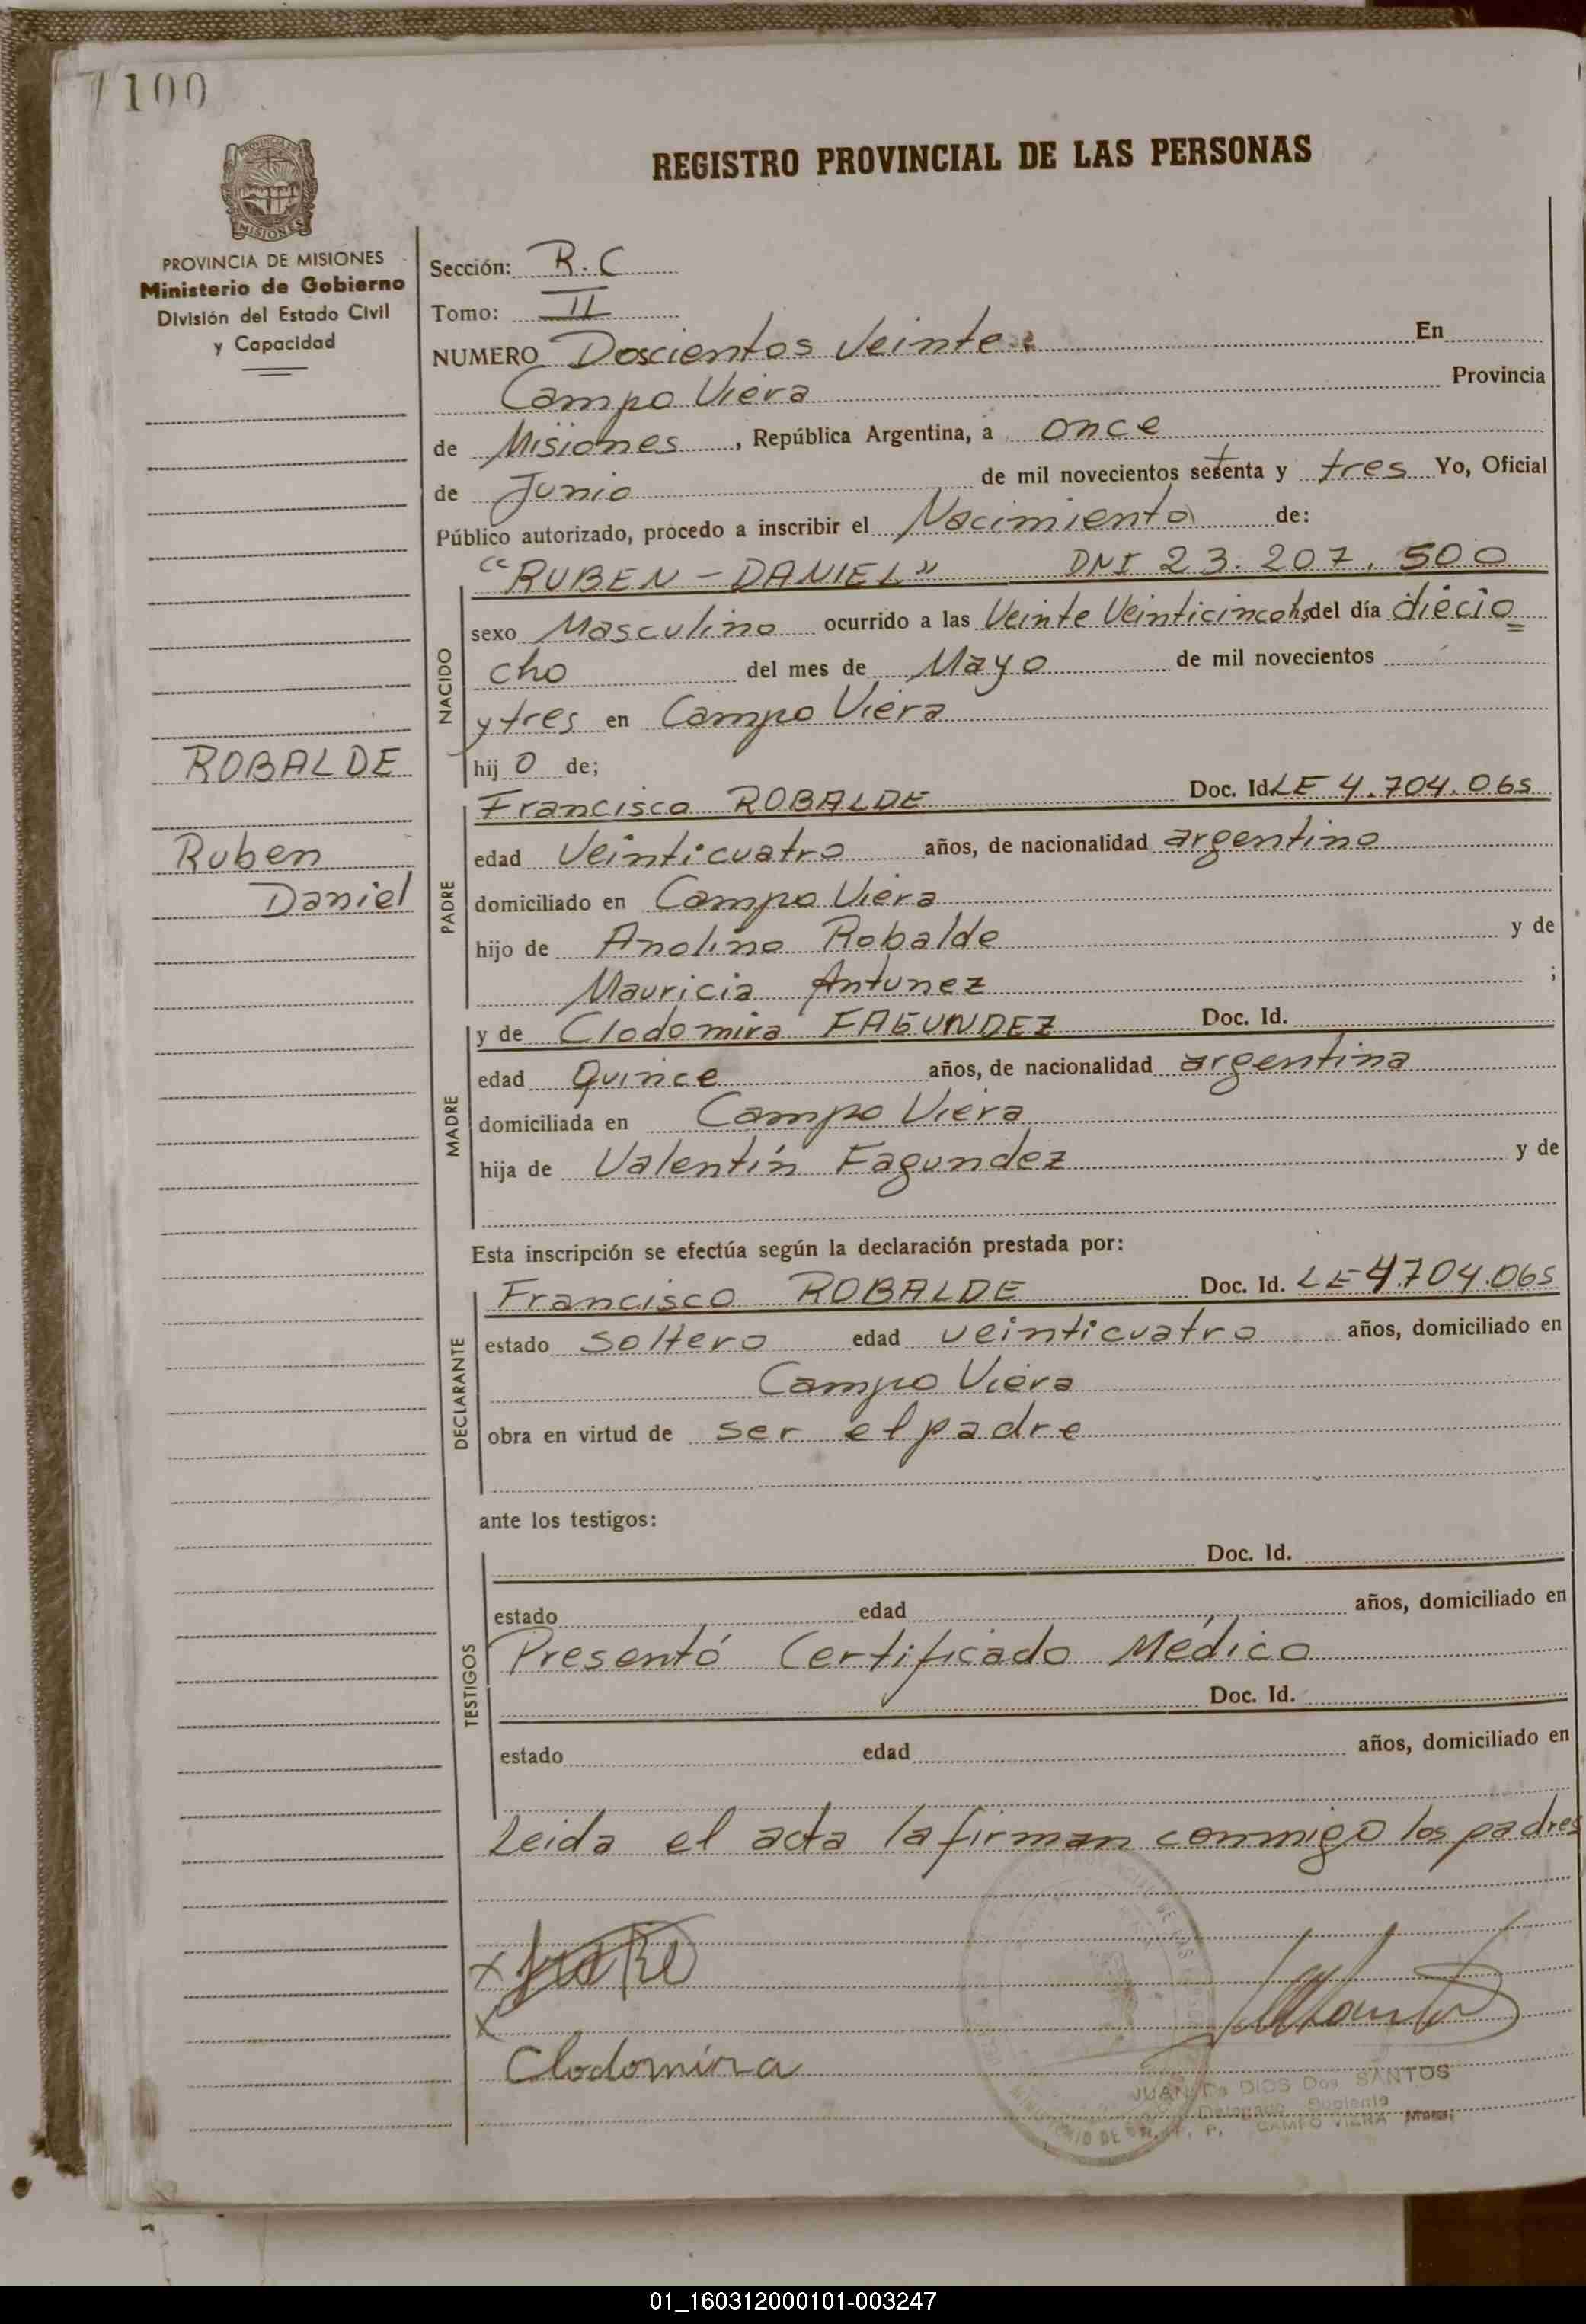 100
REGISTRO PROVINCIAL DE LAS PERSONAS
MISIONES
PROVINCIA DE MISIONES
Ministerio de Gobierno
División del Estado Civil
y Capacidad
Sección: R.C
Tomo: II
NUMERO Doscientos Veinte En
Campo Viera Provincia
de Misiones, República Argentina, a once
de Junio de mil novecientos setenta y tres Yo, Oficial
Público autorizado, procedo a inscribir el Nacimiento de:
"RUBEN-DANIEL" DNI 23.207.500
NACIDO
sexo Masculino ocurrido a las Veinte Veinticinco hs del día diecio=
cho del mes de Mayo de mil novecientos
y tres en Campo Viera
hijo de;
ROBALDE
Ruben
Daniel
PADRE
Francisco ROBALDE Doc. Id LE 4.704.065
edad Veinticuatro años, de nacionalidad argentino
domiciliado en Campo Viera
hijo de Anolino Robalde y de
Mauricia Antunez ;
MADRE
y de Clodomira FAGUNDEZ Doc. Id.
edad Quince años, de nacionalidad argentina
domiciliada en Campo Viera
hija de Valentín Fagundez y de
Esta inscripción se efectúa según la declaración prestada por:
DECLARANTE
Francisco ROBALDE Doc. Id. LE 4.704.065
estado Soltero edad veinticuatro años, domiciliado en
Campo Viera
obra en virtud de ser el padre
ante los testigos:
TESTIGOS
Doc. Id.
estado edad años, domiciliado en
Presentó Certificado Médico
Doc. Id.
estado edad años, domiciliado en
Leida el acta la firman conmigo los padres
x
x
Clodomira
JUAN De DIOS Dos SANTOS
Delegado Suplente
R. P. P. CAMPO VIERA
01_160312000101-003247